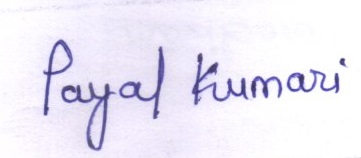 Payal Kumari